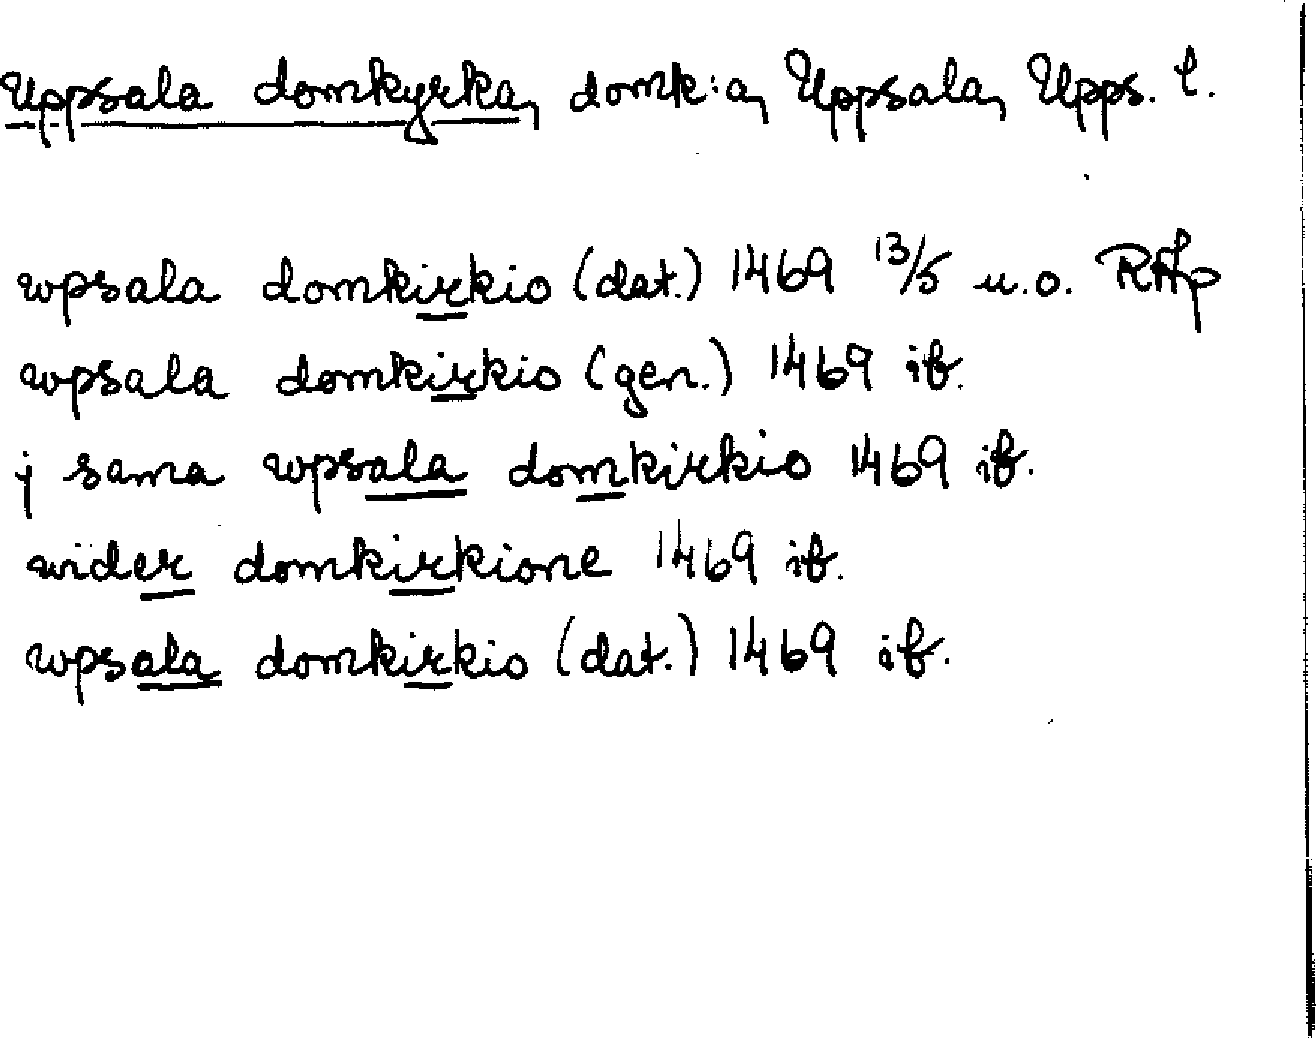 Uppsala domkyrka, domk:a, Uppsala, Upps. l.
wpsala domkirkio (dat.) 1469 13/5 u.o. RAp
wpsala domkirkio (gen.) 1469 ib.
j sama wpsala domkirkio 1469 ib.
wider domkirkione 1469 ib.
wpsala domkirkio (dat.) 1469 ib.